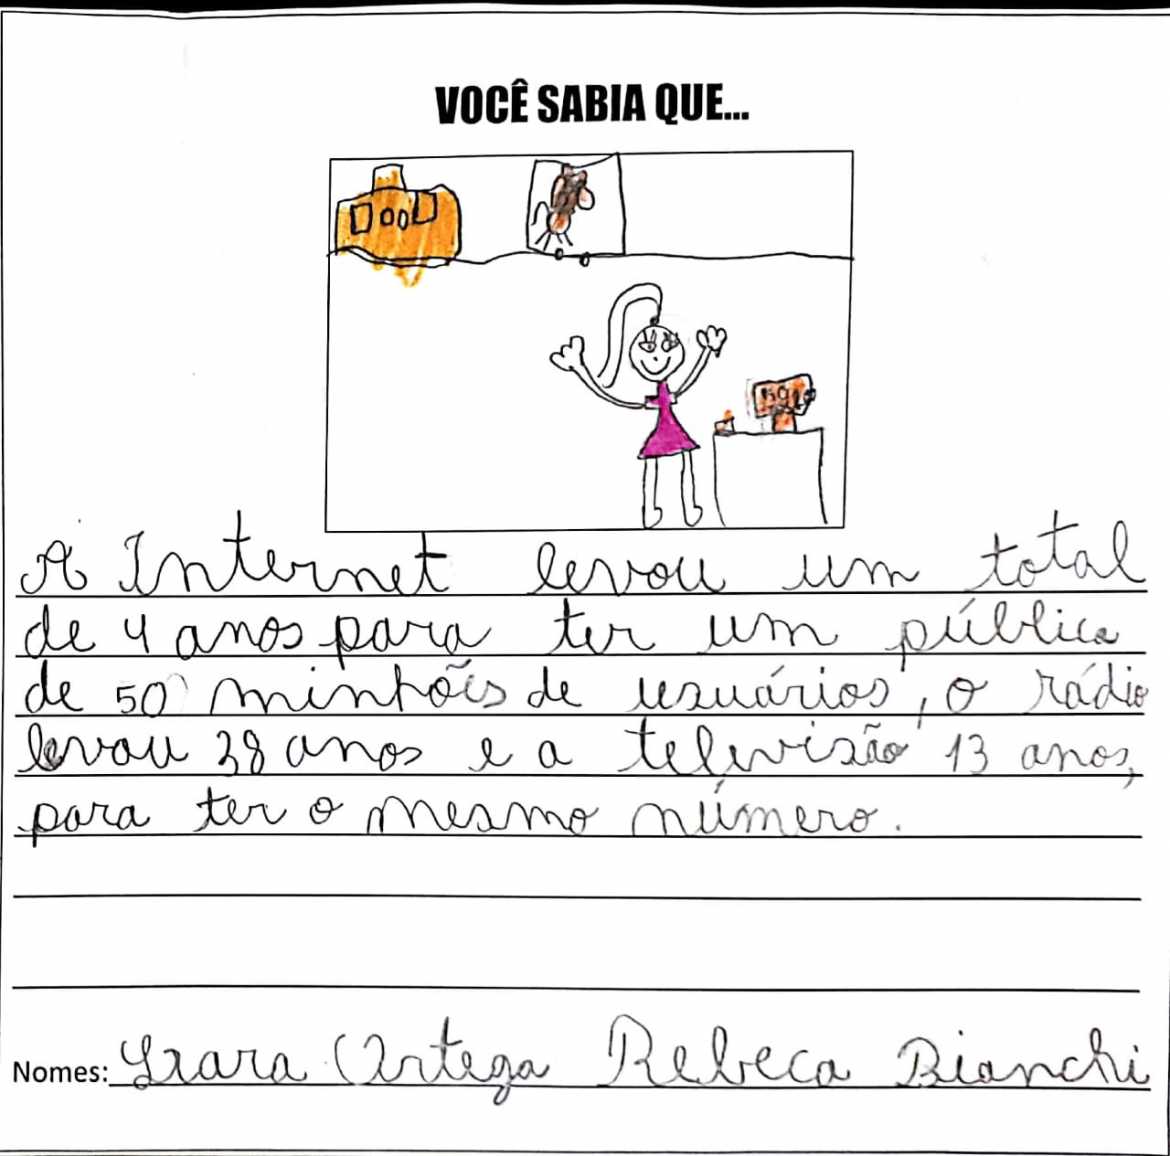 VOCÊ SABIA QUE...
A Internet levou um total
de 4 anos para ter um público
de 50 minhões de usuários, o rádio
levou 38 anos e a televisão 13 anos,
para ter o mesmo número.
Nomes: Ortega Rebeca Bianchi